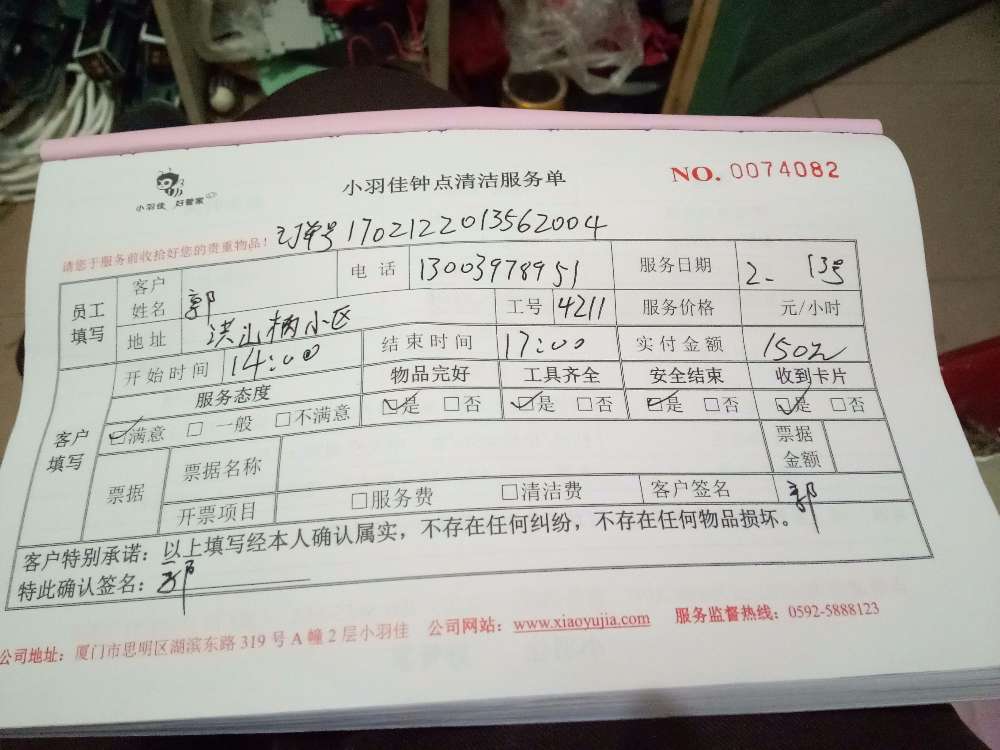 小羽佳 好管家
小羽佳钟点清洁服务单
NO. 0074082
请您于服务前收拾好您的贵重物品！
订单号17021220135620004
员工填写 客户姓名 郭 电话 13003978951 服务日期 2. 13号
地址 洪山柄小区 工号 4211 服务价格 元/小时
客户填写 开始时间 14:00 结束时间 17:00 实付金额 150元
服务态度 物品完好 工具齐全 安全结束 收到卡片
☑满意 □一般 □不满意 ☑是 □否 ☑是 □否 ☑是 □否 ☑是 □否
票据 票据名称 票据金额
开票项目 □服务费 □清洁费 客户签名 郭
客户特别承诺：以上填写经本人确认属实，不存在任何纠纷，不存在任何物品损坏。
特此确认签名：郭
公司地址：厦门市思明区湖滨东路 319 号 A 幢 2 层小羽佳 公司网站：www.xiaoyujia.com 服务监督热线：0592-5888123